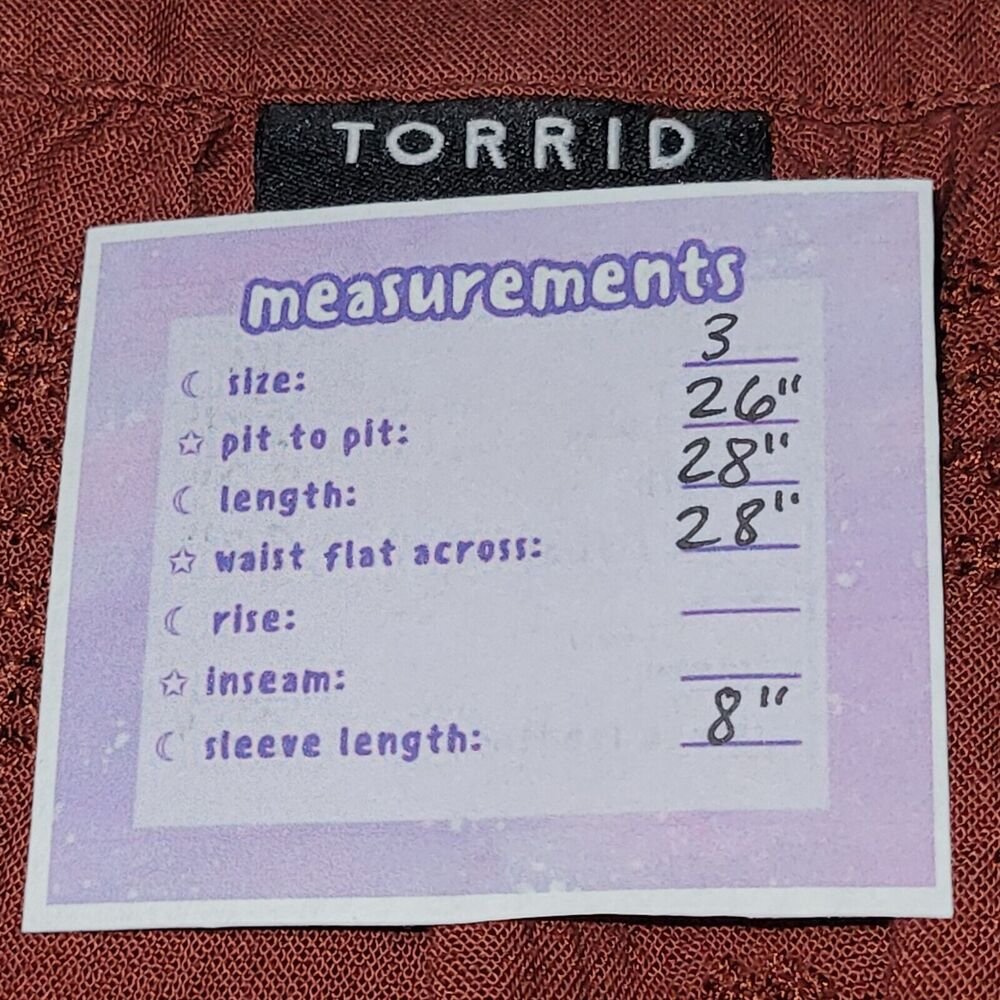 TORRID
measurements
size: 3
pit to pit: 26"
length: 28"
waist flat across: 28"
rise:
inseam:
sleeve length: 8"